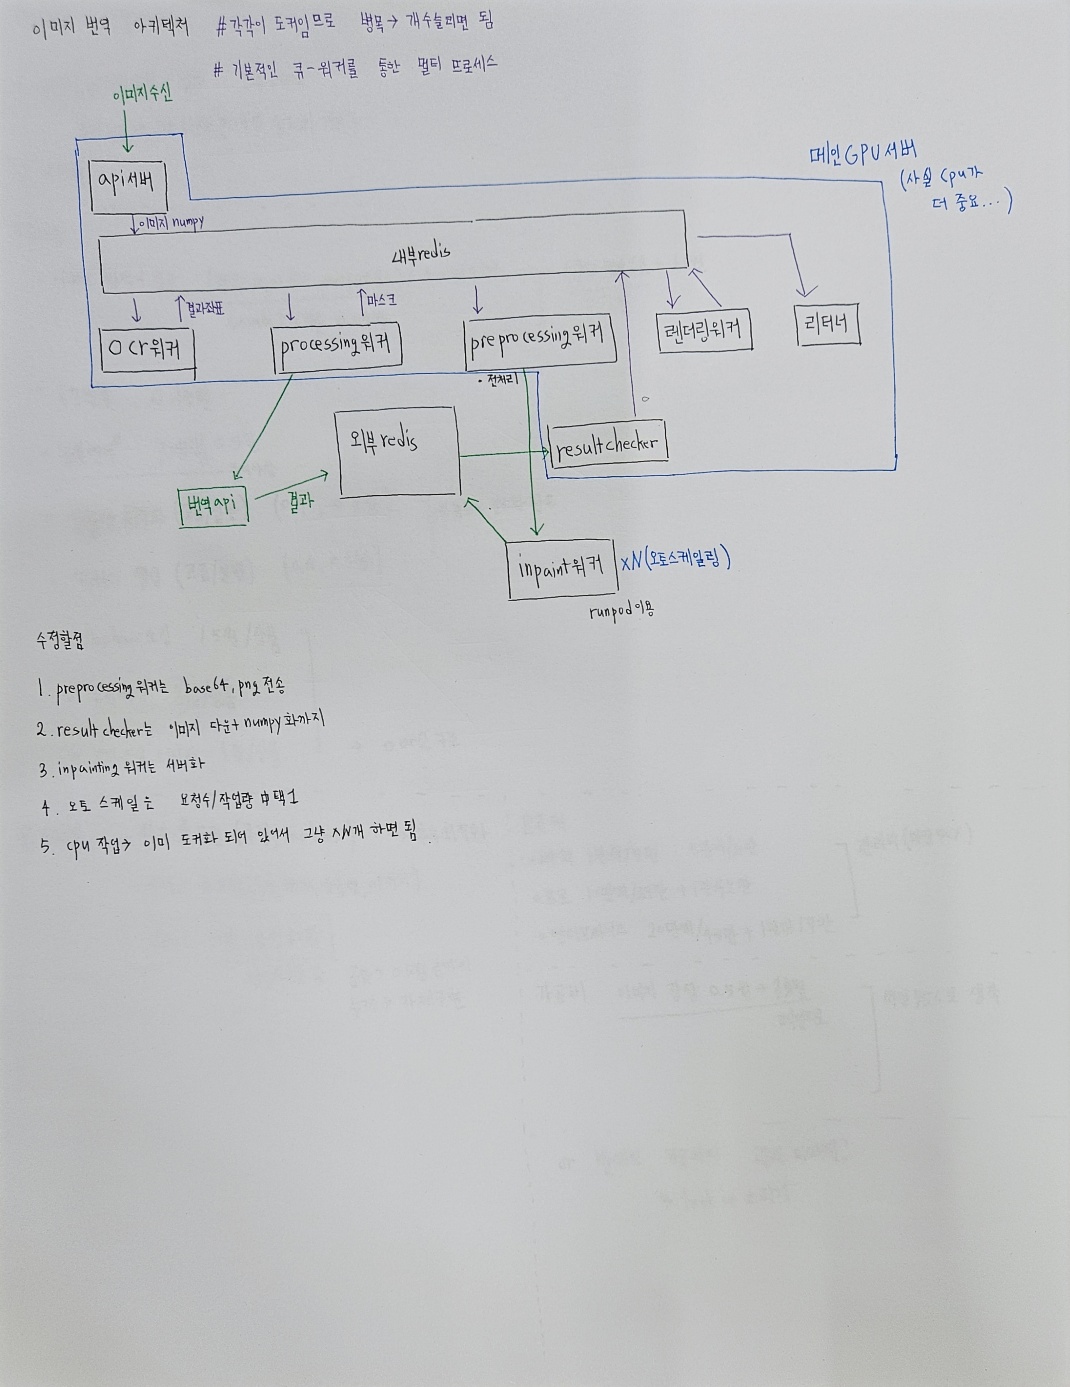 이미지 번역 아키텍처 #각각이 도커임므로 병목→ 개수늘리면 됨
# 기본적인 큐-워커를 통한 멀티 프로세스
이미지수신
메인GPU서버
(사실 cpu가
더 중요...)
api서버
이미지 numpy
내부redis
결과좌표
마스크
ocr워커
processing워커
preprocessing워커
렌더링워커
리터너
· 전처리
외부 redis
resultchecker
번역api
결과
inpaint워커
xN(오토스케일링)
runpod이용
수정할점
1. preprocessing워커는 base64, png 전송
2. result checker는 이미지 다운+ numpy화까지
3. inpainting 워커는 서버화
4. 오토 스케일은 요청수/작업량 中택1
5. cpu 작업→ 이미 도커화 되어 있어서 그냥 xN개 하면 됨.